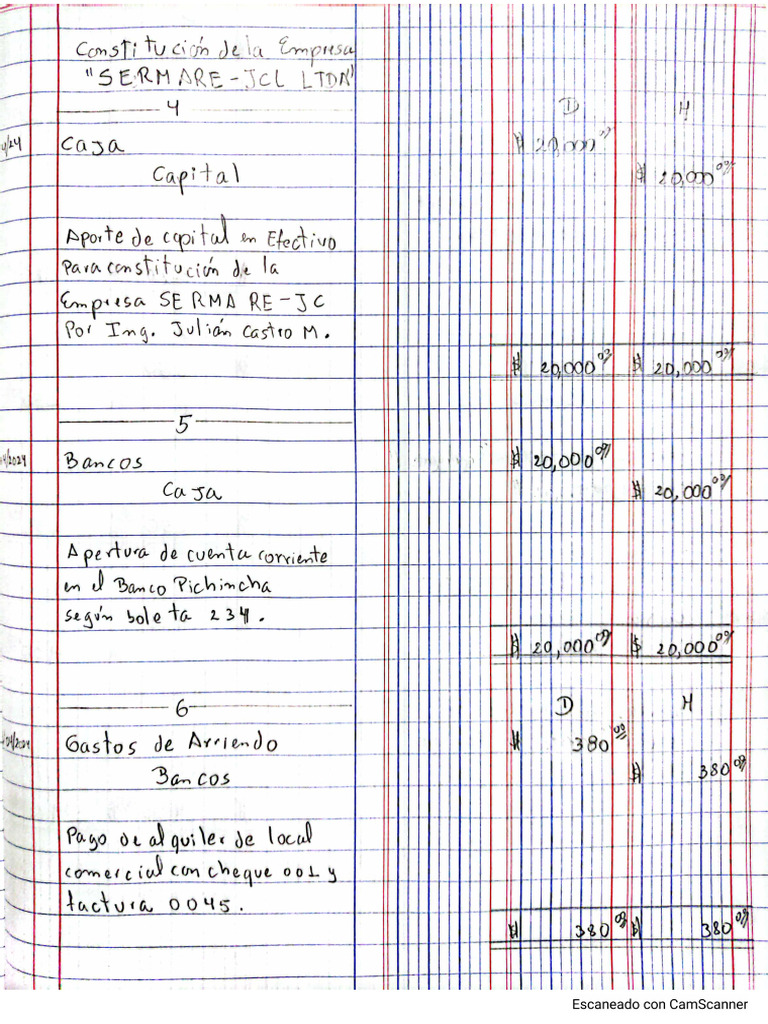 Constitución de la Empresa
"SERMARE-JCL LTDA"
4 D H
Caja $ 20,000
Capital $ 20,000 00/
Aporte de capital en Efectivo
Para constitución de la
Empresa SERMARE-JC
Por Ing. Julián Castro M.
$ 20,000 00/ $ 20,000 00/
5
/2024 Bancos $ 20,000 00/
Caja $ 20,000 00/
Apertura de cuenta corriente
en el Banco Pichincha
según boleta 234.
$ 20,000 00/ $ 20,000 00/
6 D H
04/2024 Gastos de Arriendo $ 380 00/
Bancos $ 380 00/
Pago de alquiler de local
comercial con cheque 001 y
factura 0045.
$ 380 00/ $ 380 00/
Escaneado con CamScanner